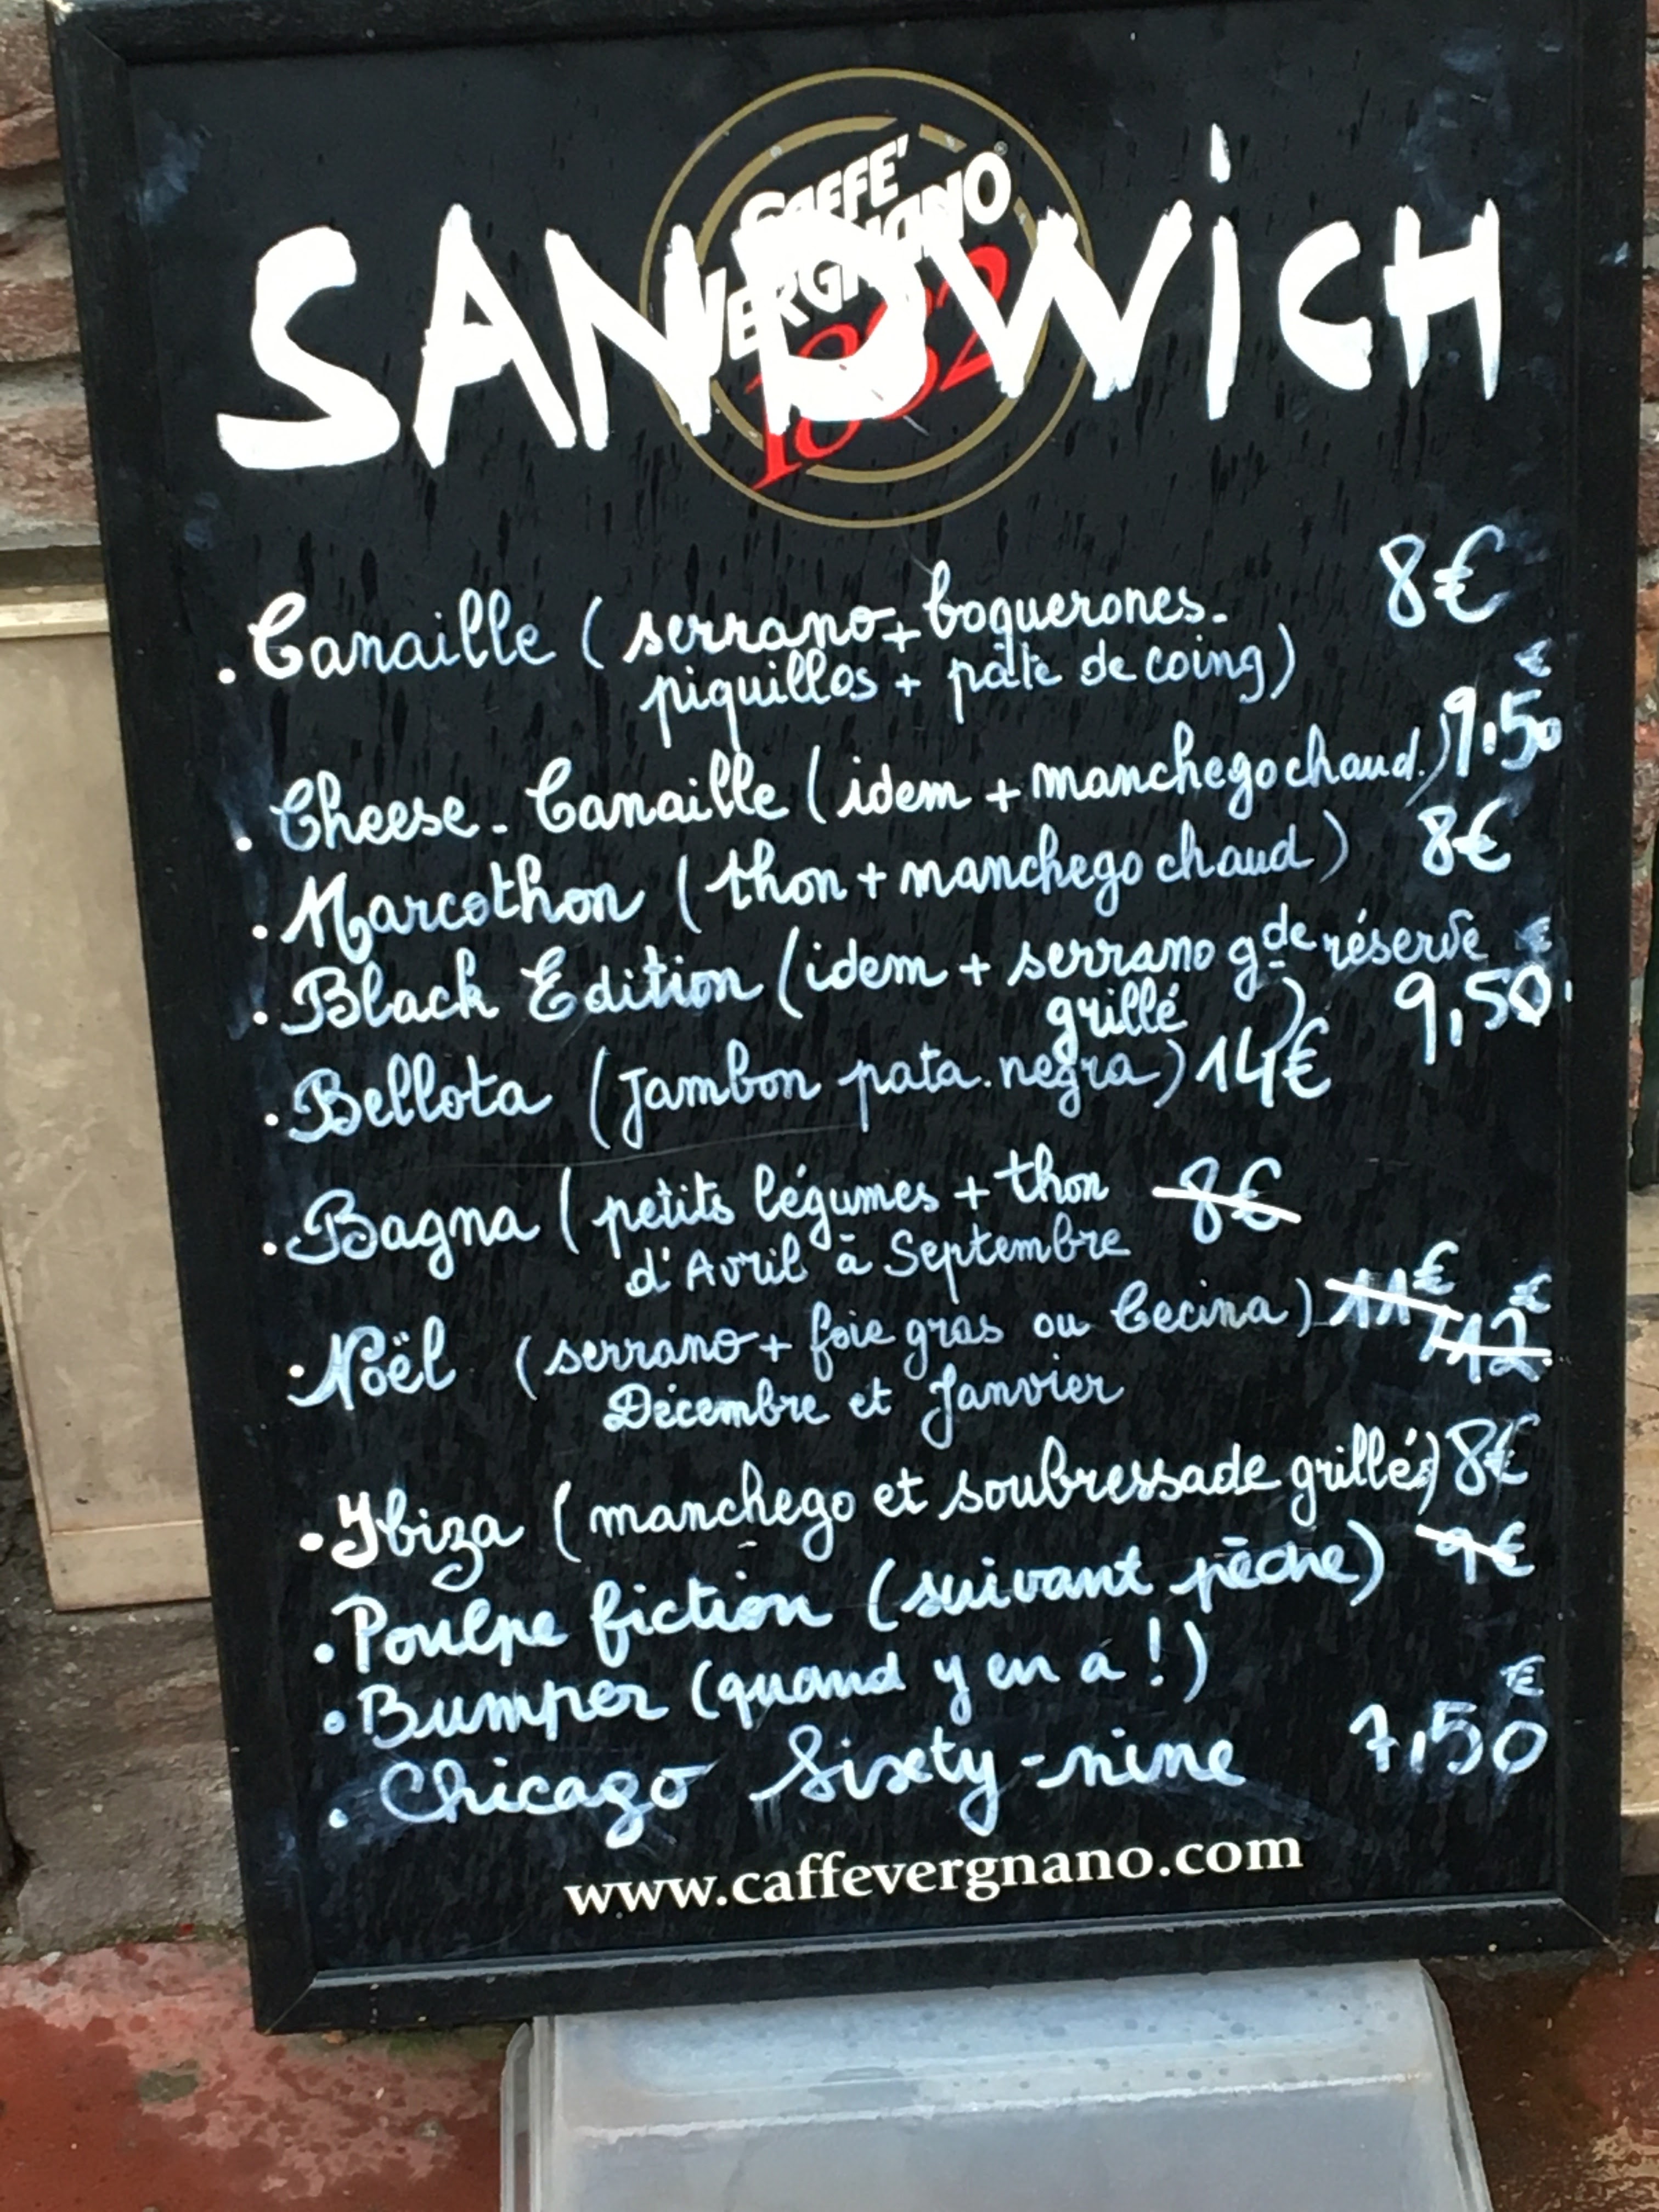 CAFFÈ
VERGNANO
1882
SANDWiCH
. Canaille (serrano + boquerones - 8€
piquillos + pâte de coing)
. Cheese - Canaille (idem + manchego chaud.) 9,50 €
. Marcothon (thon + manchego chaud) 8€
. Black Edition (idem + serrano gde réserve €
grillé ). 9,50
. Bellota (Jambon pata.negra) 14€
. Bagna (petits légumes + thon 8€
d'Avril à Septembre
. Noël (serrano + foie gras ou Cecina) 11€ 12€
Décembre et Janvier
. Ibiza (manchego et soubressade grillés) 8€
. Poulpe fiction (suivant pêche) 9€
. Bumper (quand y en a !)
. Chicago Sixety-nine 7,50 €
www.caffevergnano.com